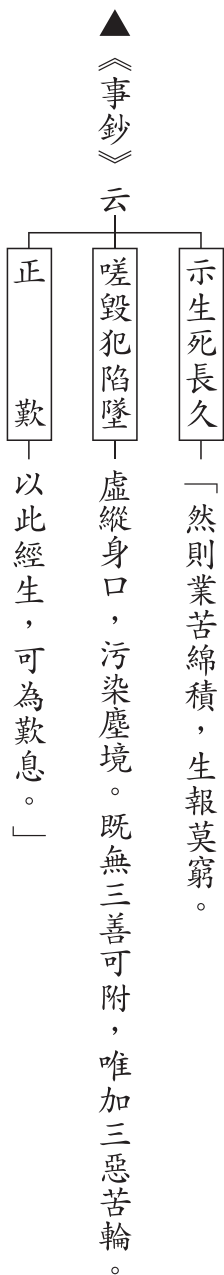 ▲《事鈔》云
示生死長久
「然則業苦綿積，生報莫窮。
嗟毀犯陷墜
虛縱身口，污染塵境。既無三善可附，唯加三惡苦輪。
正歎
以此經生，可為歎息。」